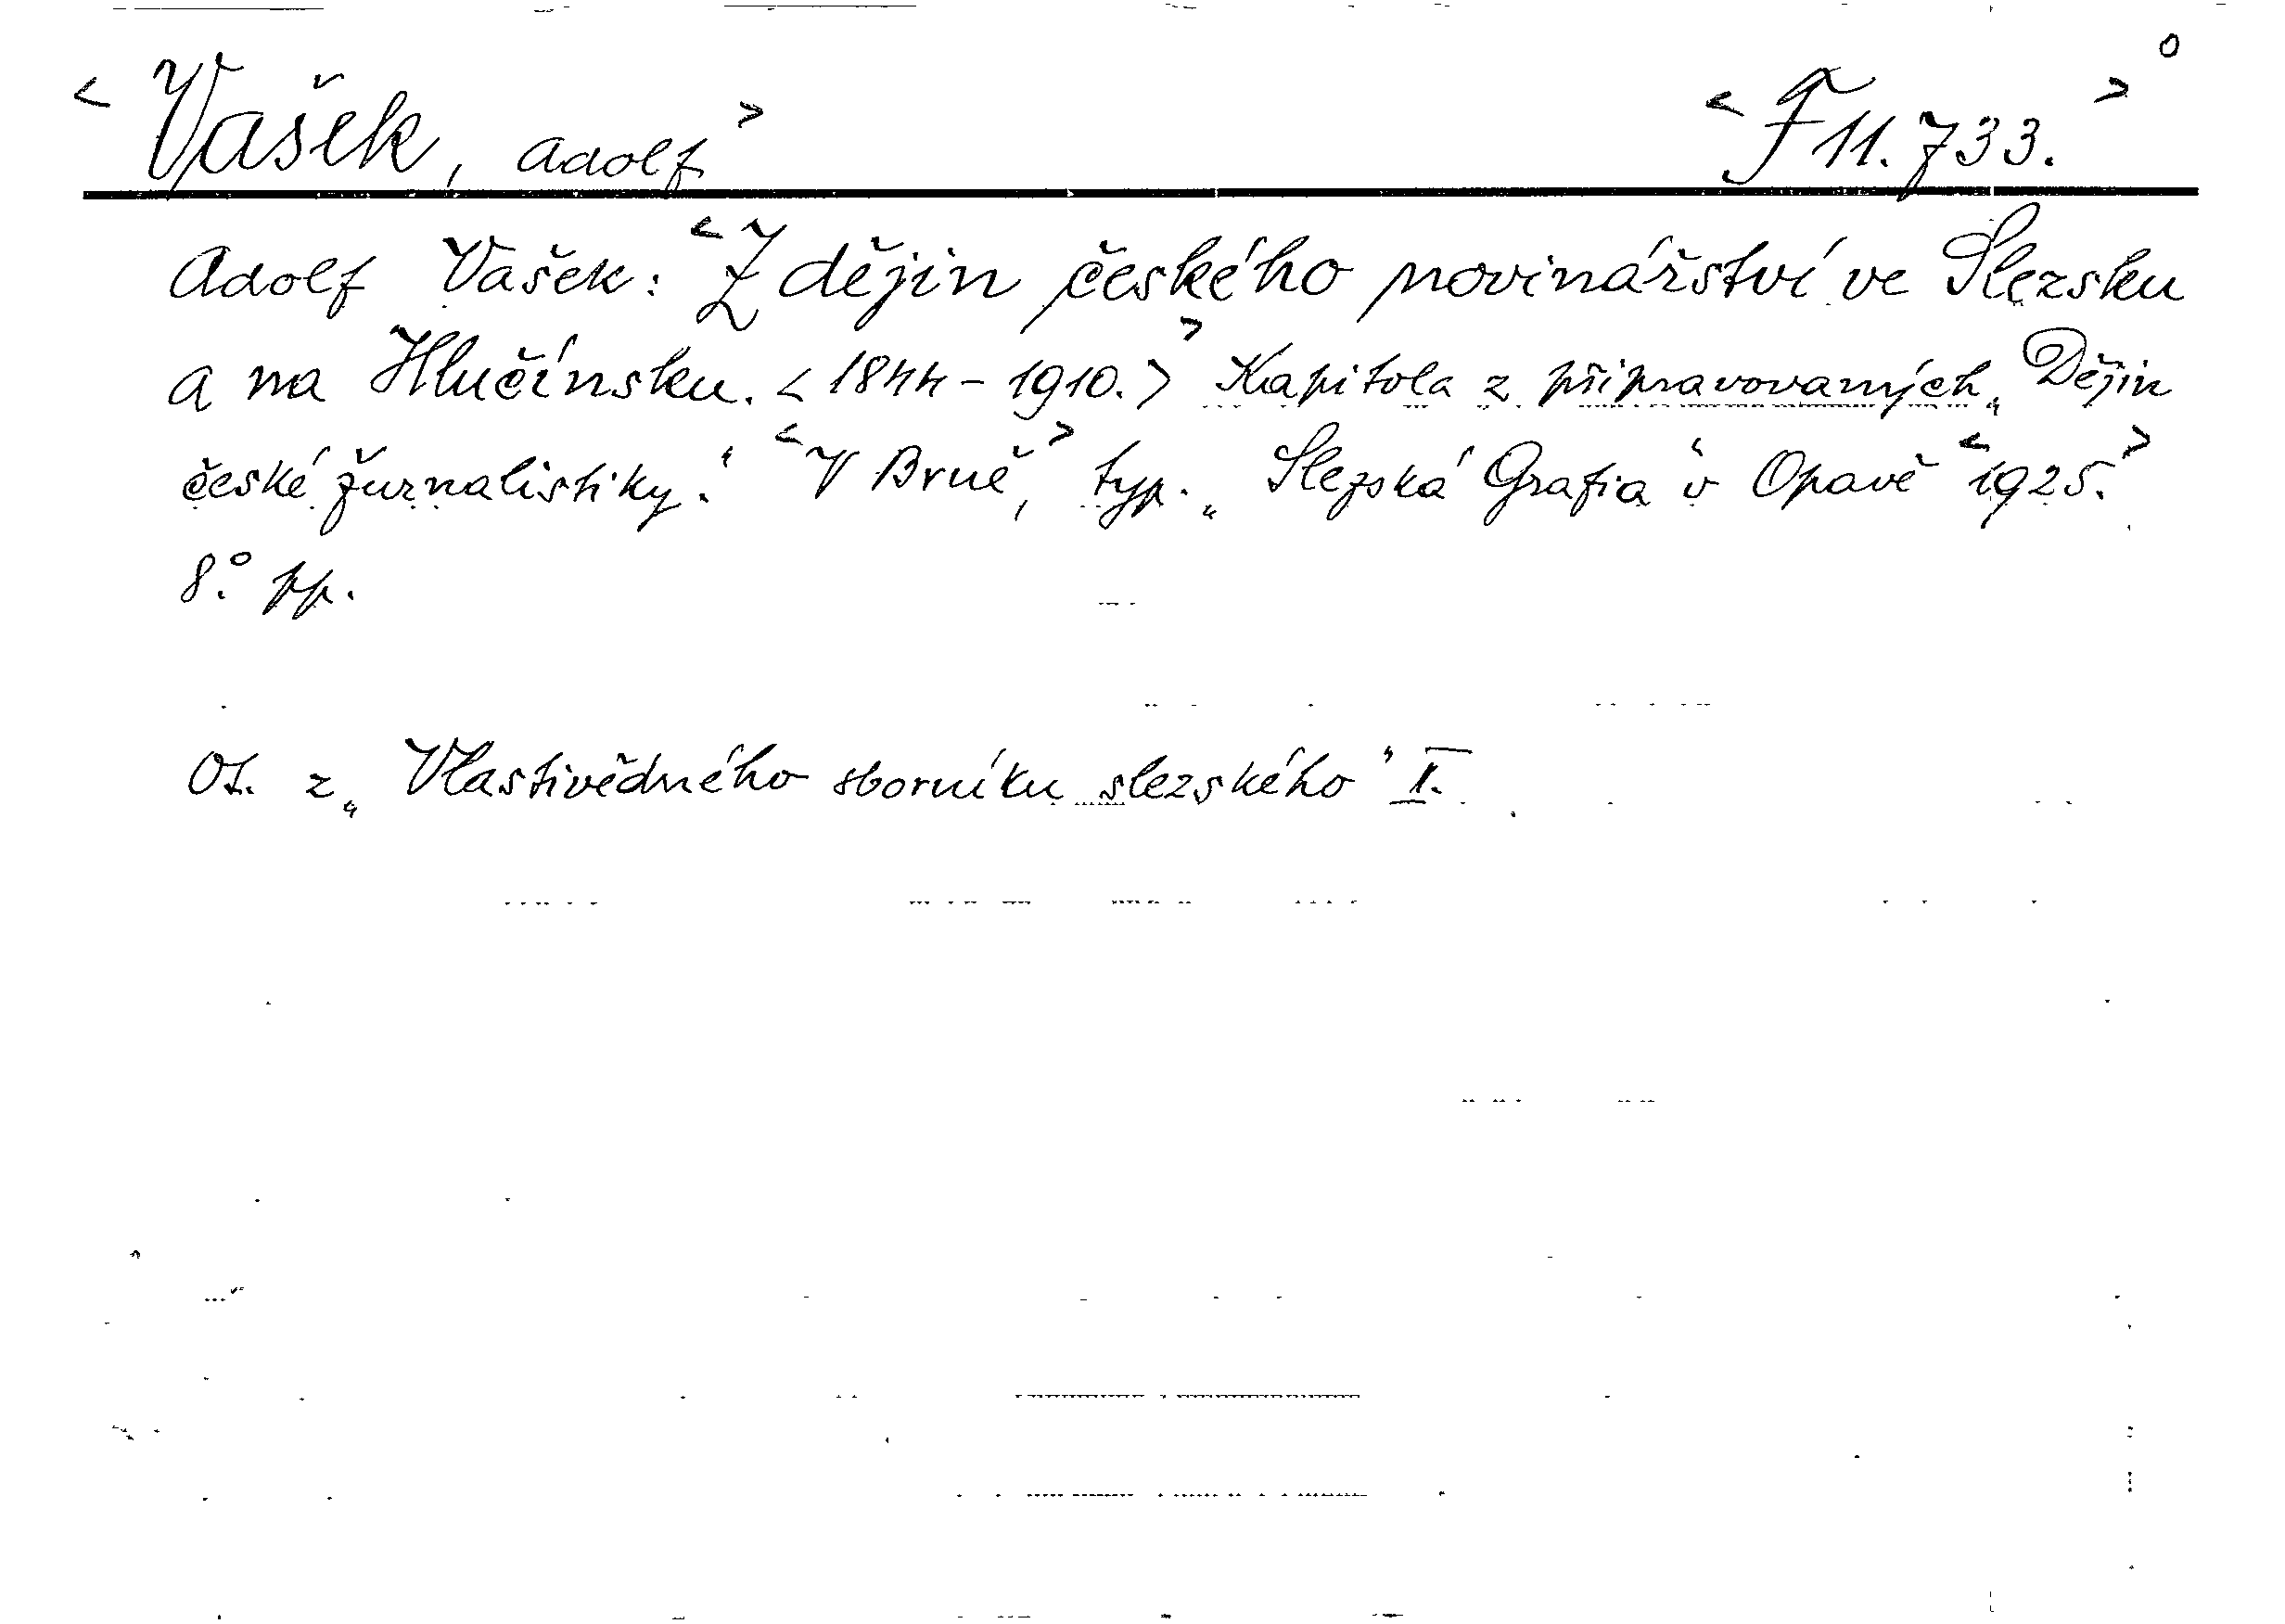 <Vašek, Adolf> <F 11.733.>
Adolf Vašek: <Z dějin českého novinářství ve Slezsku
a na Hlučínsku. <1844-1910.>> Kapitola z připravovaných „Dějin
české žurnalistiky.“ <V Brně,> typ. „Slezská Grafia“ v Opavě <1925.>
8.° pp.
Ot. z „Vlastivědného sborníku slezského“ I.